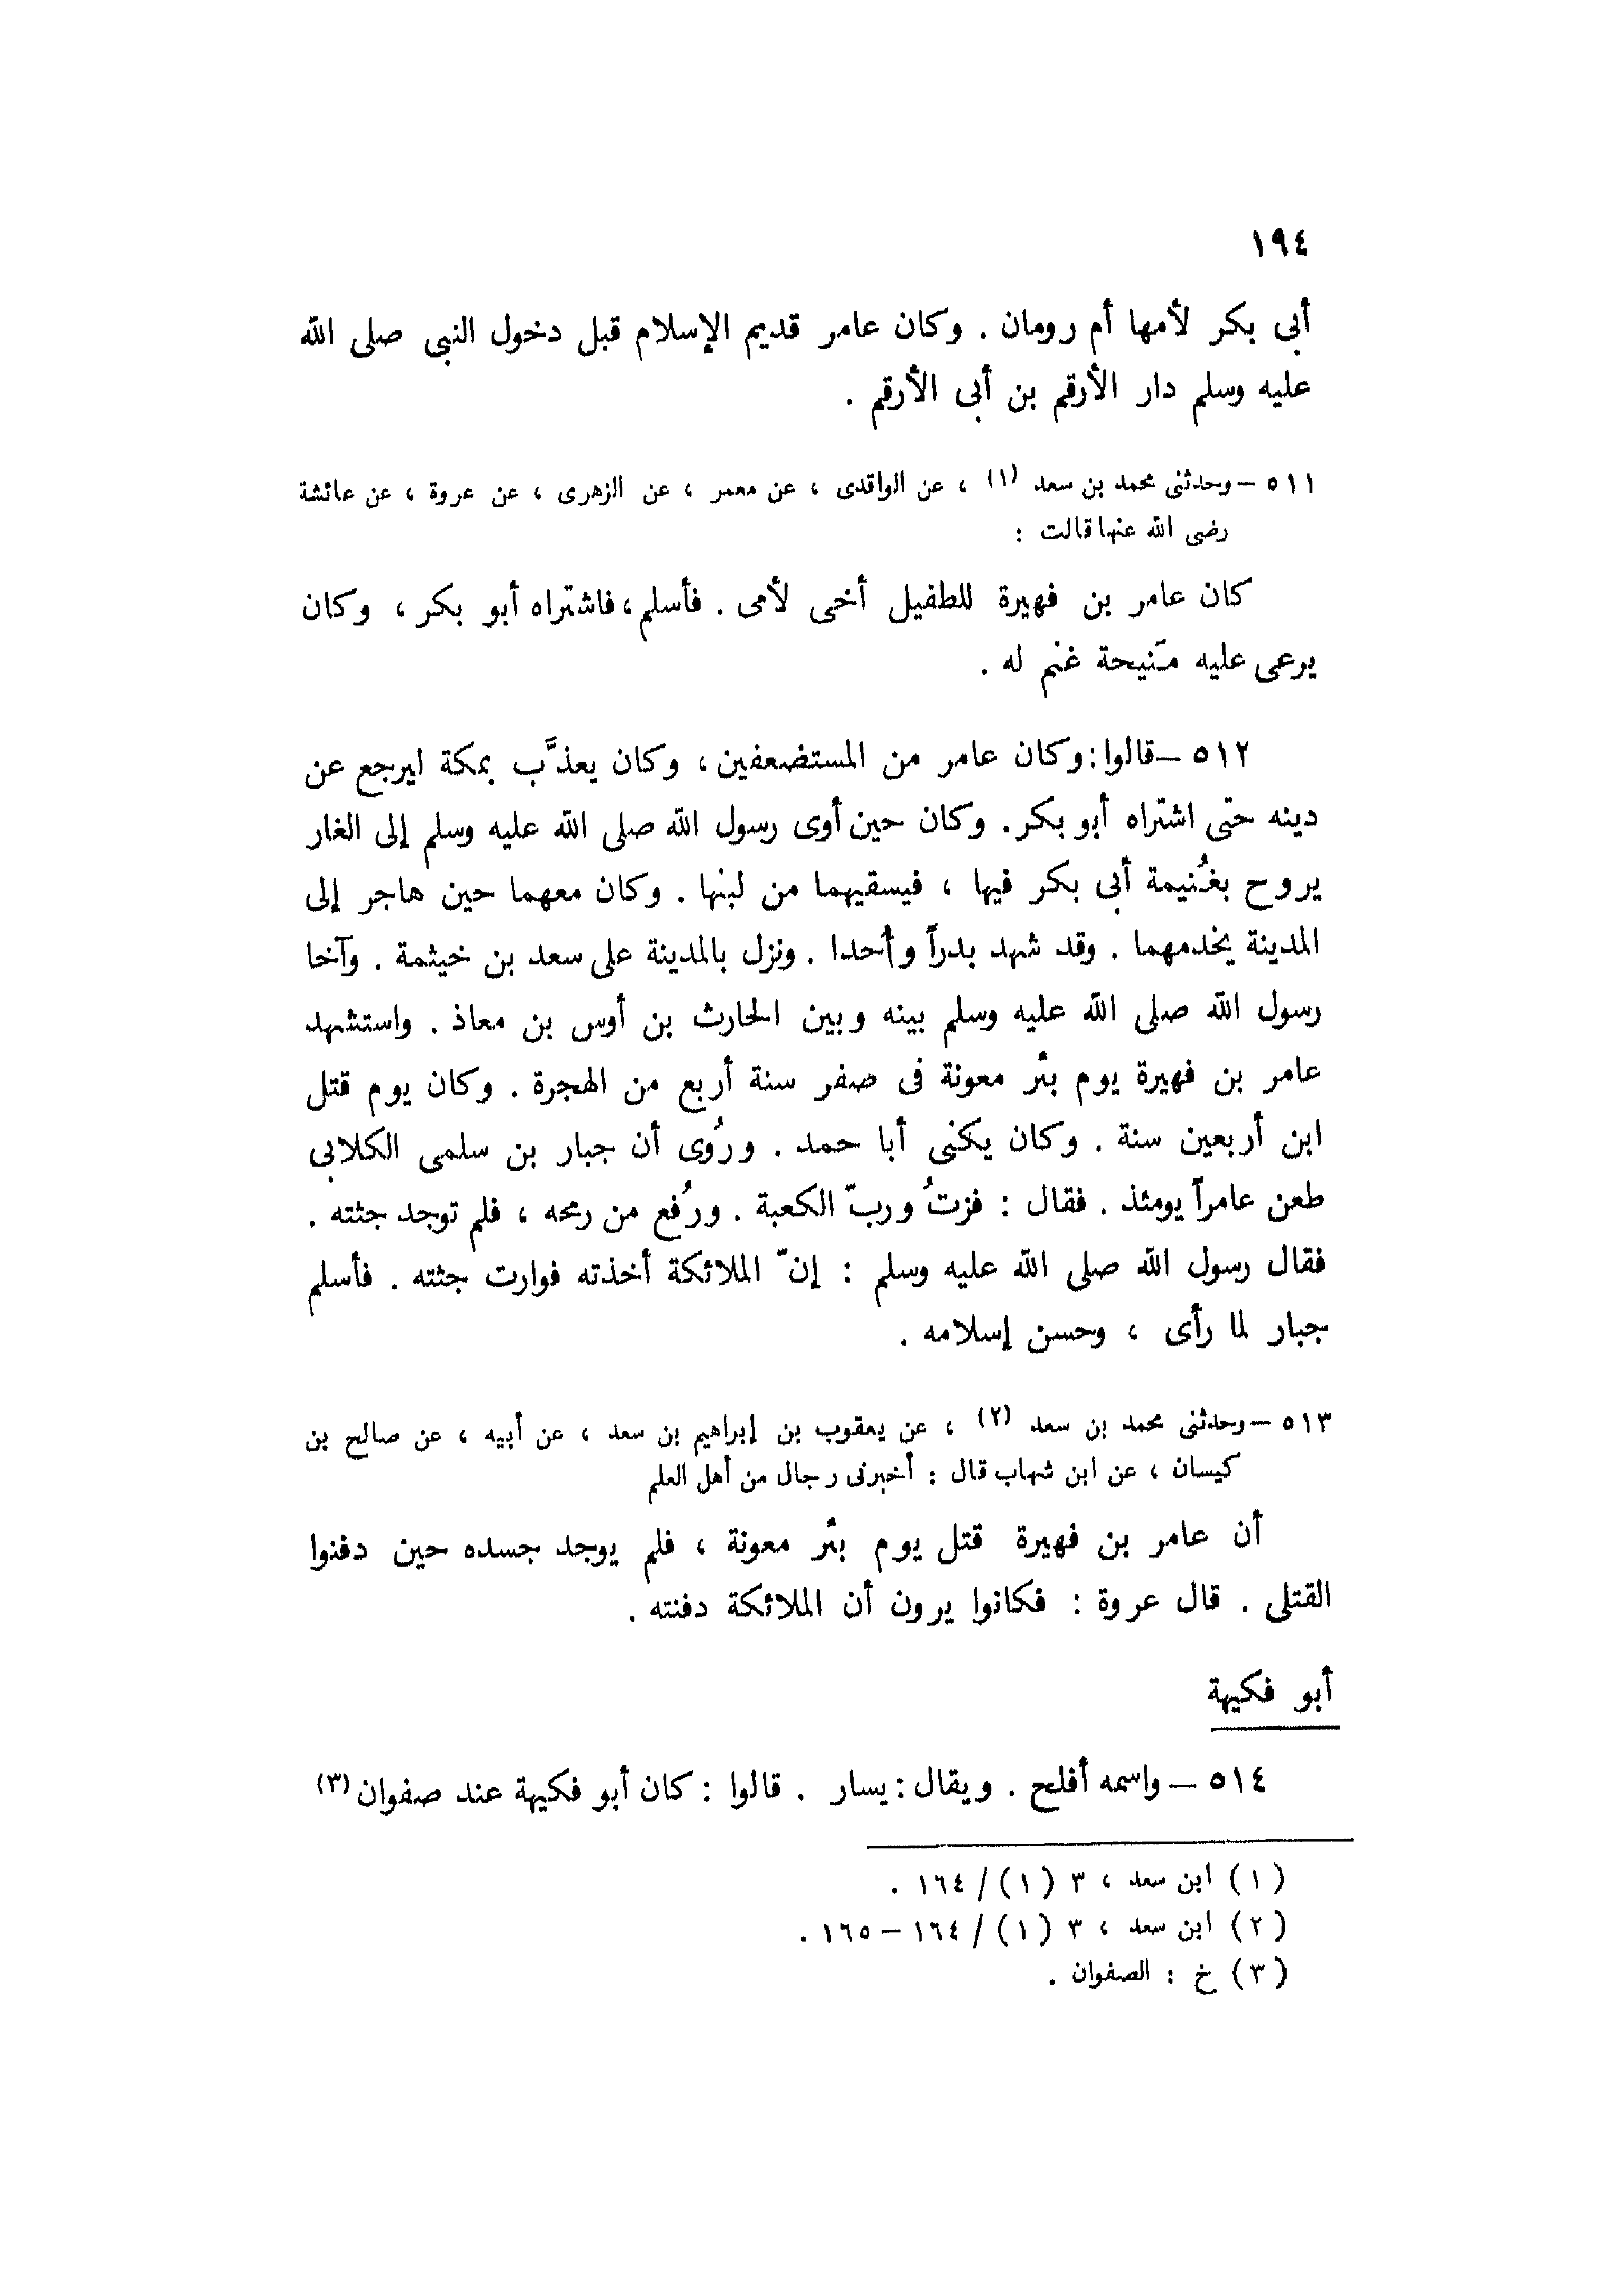 ١٩٤
أبى بكر لأمها أم رومان . وكان عامر قديم الإسلام قبل دخول النبى صلى الله
عليه وسلم دار الأرقم بن أبى الأرقم .
٥١١ – وحدثنى محمد بن سعد (١) ، عن الواقدى ، عن معمر ، عن الزهرى ، عن عروة ، عن عائشة
رضى الله عنها قالت :
كان عامر بن فهيرة للطفيل أخى لأمى . فأسلم ، فاشتراه أبو بكر ، وكان
يرعى عليه مَنيحة غنم له .
٥١٢ – قالوا : وكان عامر من المستضعفين ، وكان يعذَّب بمكة ليرجع عن
دينه حتى اشتراه أبو بكر . وكان حين أوى رسول الله صلى الله عليه وسلم إلى الغار
يروح بغُنيمة أبى بكر فيها ، فيسقيهما من لبنها . وكان معهما حين هاجر إلى
المدينة يخدمهما . وقد شهد بدراً وأُحدا . ونزل بالمدينة على سعد بن خيثمة . وآخا
رسول الله صلى الله عليه وسلم بينه وبين الحارث بن أوس بن معاذ . واستشهد
عامر بن فهيرة يوم بئر معونة فى صفر سنة أربع من الهجرة . وكان يوم قتل
ابن أربعين سنة . وكان يكنى أبا حمد . ورُوى أن جبار بن سلمى الكلابى
طعن عامراً يومئذ . فقال : فزتُ وربّ الكعبة . ورُفع من رمحه ، فلم توجد جثته .
فقال رسول الله صلى الله عليه وسلم : إنّ الملائكة أخذته فوارت جثته . فأسلم
جبار لما رأى ، وحسن إسلامه .
٥١٣ – وحدثنى محمد بن سعد (٢) ، عن يعقوب بن إبراهيم بن سعد ، عن أبيه ، عن صالح بن
كيسان ، عن ابن شهاب قال : أخبرنى رجال من أهل العلم
أن عامر بن فهيرة قتل يوم بئر معونة ، فلم يوجد جسده حين دفنوا
القتلى . قال عروة : فكانوا يرون أن الملائكة دفنته .
أبو فكيهة
٥١٤ – واسمه أفلح . ويقال : يسار . قالوا : كان أبو فكيهة عند صفوان (٣)
(١) ابن سعد ، ٣ (١) / ١٦٤ .
(٢) ابن سعد ، ٣ (١) / ١٦٤ – ١٦٥ .
(٣) خ : الصفوان .